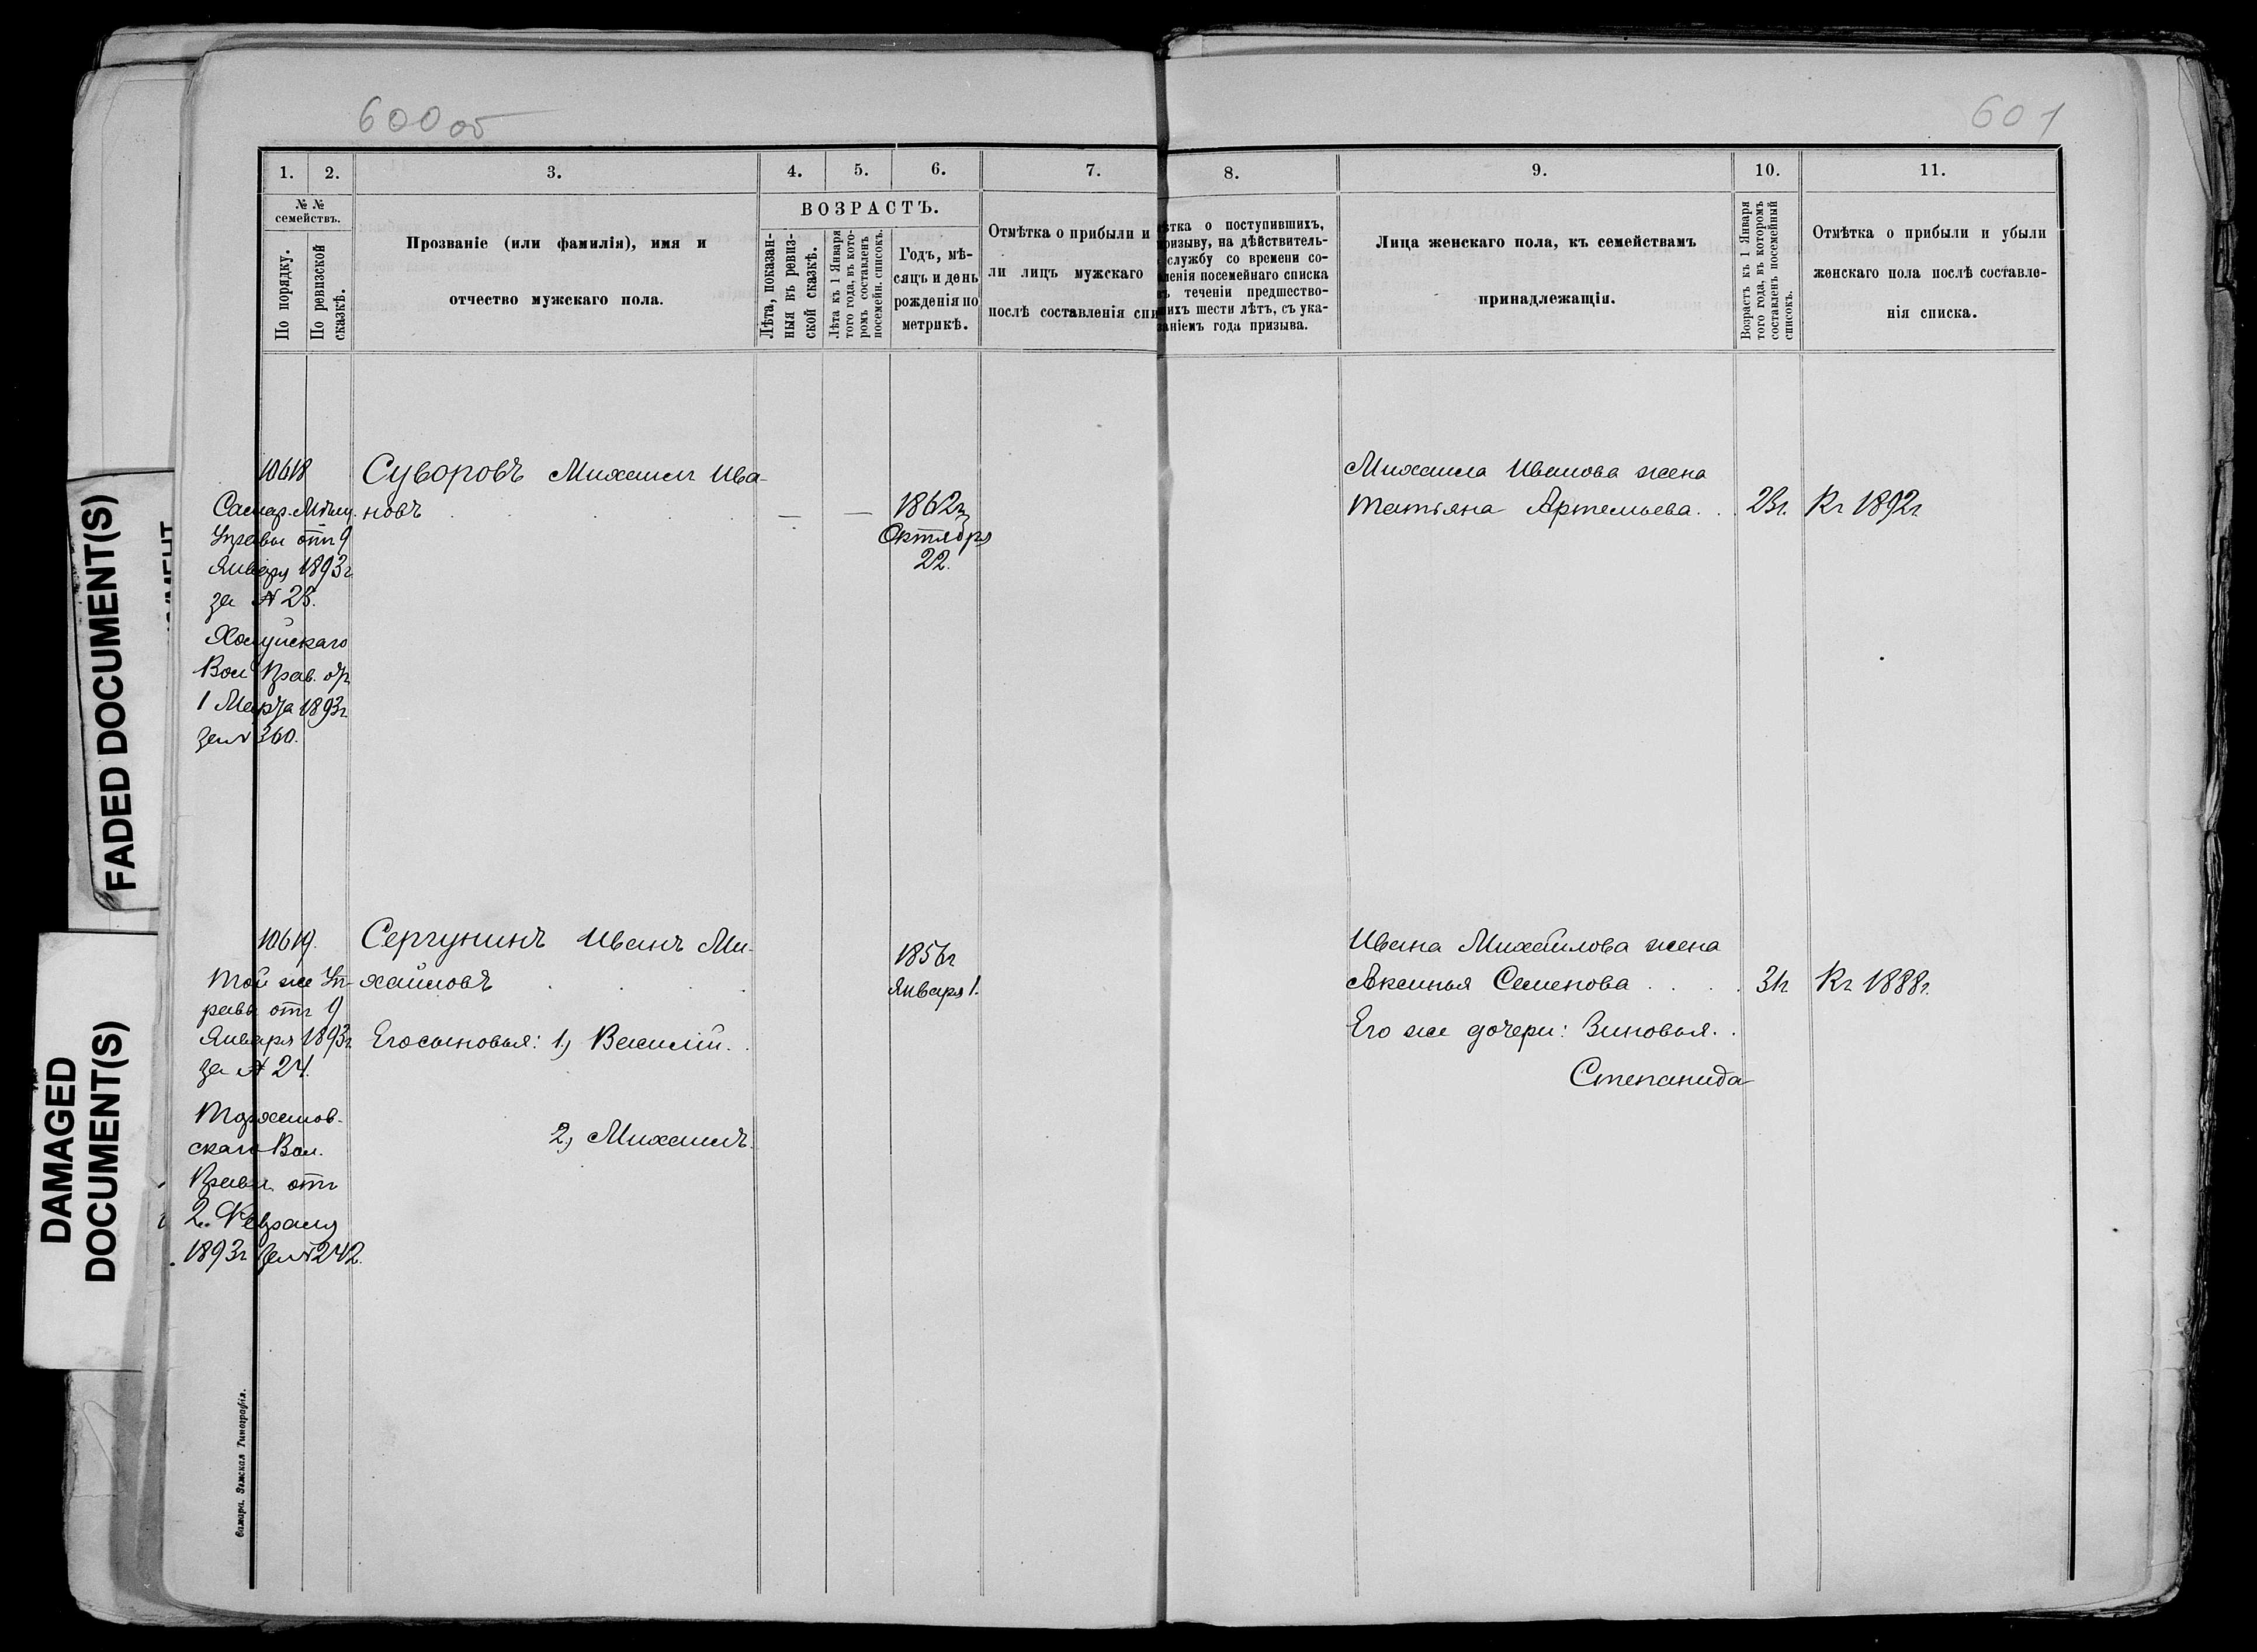 600 об
601
1. 2. 3. 4. 5. 6. 7. 8. 9. 10. 11.
№ №
семействъ.
По порядку.
По ревизской
сказкѣ.
Прозваніе (или фамилія), имя и
отчество мужскаго пола.
ВОЗРАСТЪ.
Лѣта, показан-
ныя въ ревиз-
ской сказкѣ.
Лѣта къ 1 Января
того года, въ кото-
ромъ составленъ
посемейн. списокъ.
Годъ, мѣ-
сяцъ и день
рожденія по
метрикѣ.
Отмѣтка о прибыли и
ли лицъ мужскаго
послѣ составленія спи
ѣтка о поступившихъ,
ризыву, на дѣйствитель-
службу со времени со-
ленія посемейнаго списка
ъ теченіи предшество-
ихъ шести лѣтъ, съ ука-
аніемъ года призыва.
Лица женскаго пола, къ семействамъ
принадлежащія.
Возрастъ къ 1 Января
того года, въ которомъ
составленъ посемейный
списокъ.
Отмѣтка о прибыли и убыли
женскаго пола послѣ составле-
нія списка.
10618
Самар. Мѣщ.
Управы отъ 9
Января 1893г
за № 23.
Холуйскаго
Вол Прав. от
1 Марта 1893г
за № 360.
Суворовъ Михаилъ Ива-
новъ
— —
1862г
Октября
22.
Михаила Иванова жена
Татьяна Артемьева. . 23г. Кг 1892г
10619.
Той же Уп-
равы отъ 9
Января 1893г
за № 24.
скаго Вол.
Правл. отъ
2. Февраля
1893г за № 242.
Сергунинъ Иванъ Ми-
хайловъ
Его сыновья: 1, Василій. .
2, Михаилъ.
1856г
Января 1.
Ивана Михайлова жена
Аксинья Семенова . . . . 31г Кг 1888г.
Его же дочери: Зиновья. .
Степанида
Самара. Земская Типографія.
FADED DOCUMENT(S)
DAMAGED
DOCUMENT(S)